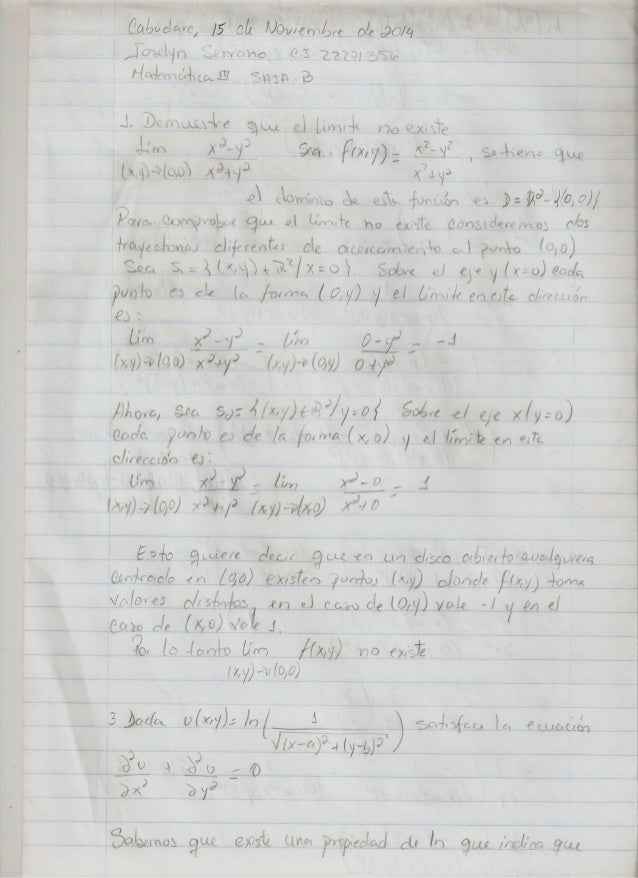 Cabudare, 15 de Noviembre de 2014
Joselyn Serrano C.I. 22271356
Matemática III SAIA-B
1. Demuestre que el límite no existe
lim (x,y)→(0,0) x²-y² / x²+y² Sea f(x,y) = x²-y² / x²+y², se tiene que
el dominio de esta función es D = R² - {(0,0)}
Para comprobar que el límite no existe consideremos dos
trayectorias diferentes de acercamiento al punto (0,0)
Sea S₁ = {(x,y) ∈ R² / x=0}. Sobre el eje y (x=0) cada
punto es de la forma (0,y) y el límite en esta dirección
es:
lim (x,y)→(0,0) x²-y² / x²+y² = lim (x,y)→(0,y) 0-y² / 0+y² = -1
Ahora, sea S₂ = {(x,y) ∈ R² / y=0} Sobre el eje x (y=0)
cada punto es de la forma (x,0) y el límite en esta
dirección es:
lim (x,y)→(0,0) x²-y² / x²+y² = lim (x,y)→(x,0) x²-0 / x²+0 = 1
Esto quiere decir que en un disco abierto cualquiera
centrado en (0,0) existen puntos (x,y) donde f(x,y) toma
valores distintos, en el caso de (0,y) vale -1 y en el
caso de (x,0) vale 1.
Por lo tanto lim (x,y)→(0,0) f(x,y) no existe.
3. Dada u(x,y) = ln(1 / √((x-a)²+(y-b)²)) satisface la ecuación
∂²u / ∂x² + ∂²u / ∂y² = 0
Sabemos que existe una propiedad de ln que indica que